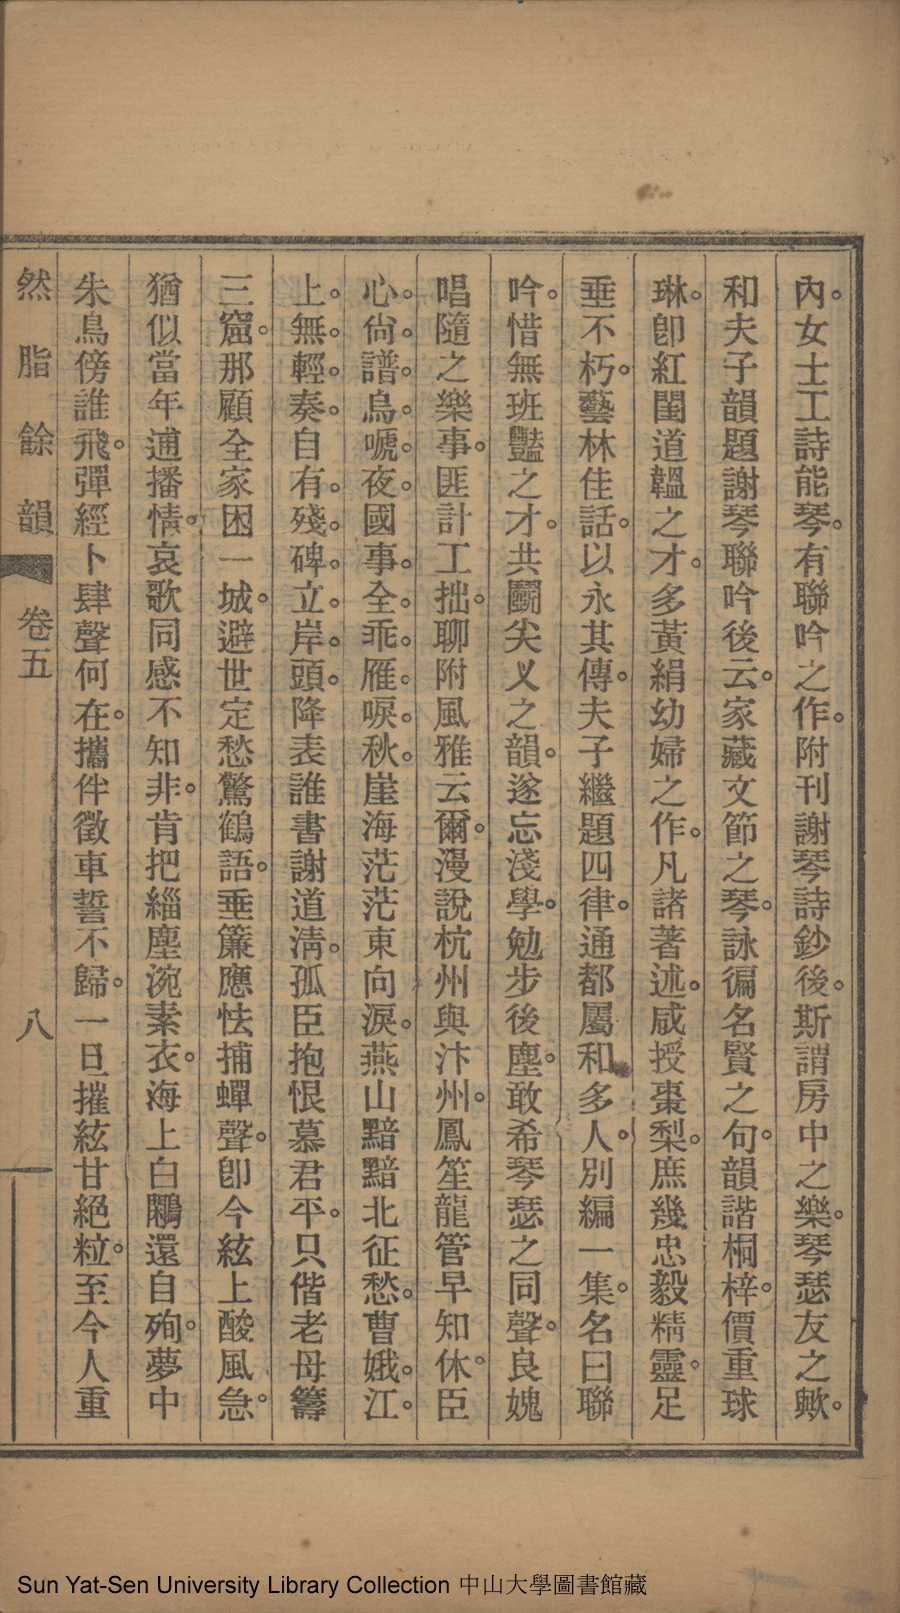 內。女士工詩能琴。有聯吟之作。附刊謝琴詩鈔後。斯謂房中之樂。琴瑟友之歟。
和夫子韻題謝琴聯吟後云。家藏文節之琴。詠徧名賢之句。韻諧桐梓。價重球
琳。卽紅閨道韞之才。多黃絹幼婦之作。凡諸著述。咸授棗梨。庶幾忠毅精靈。足
垂不朽。藝林佳話。以永其傳。夫子繼題四律。通都屬和多人。別編一集。名曰聯
吟。惜無班豔之才。共鬭尖叉之韻。遂忘淺學。勉步後塵。敢希琴瑟之同聲。良媿
唱隨之樂事。匪計工拙。聊附風雅云爾。漫說杭州與汴州。鳳笙龍管早知休。臣
心。尙。譜。烏。嗁。夜。國事。全。乖。雁。唳。秋。崖海茫茫東向淚。燕山黯黯北征愁。曹娥。江。
上。無。輕。奏。自有。殘。碑。立。岸。頭。降表誰書謝道淸。孤臣抱恨慕君平。只偕老母籌
三窟。那顧全家困一城。避世定愁驚鶴語。垂簾應怯捕蟬聲。卽今絃上酸風急。
猶似當年逋播情。哀歌同感不知非。肯把緇塵涴素衣。海上白鷴還自殉。夢中
朱鳥傍誰飛。彈經卜肆聲何在。攜伴徵車誓不歸。一旦摧絃甘絕粒。至今人重
然脂餘韻 卷五 八
Sun Yat-Sen University Library Collection 中山大學圖書館藏